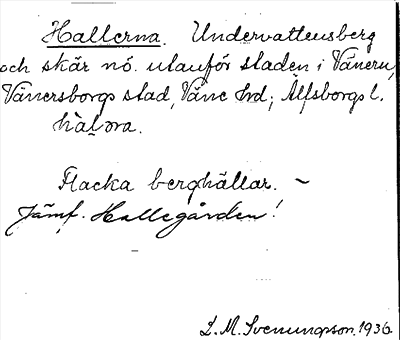 Hallerna. Undervattensberg
och skär nö. utanför staden i Vänern,
Vänersborgs stad, Väne hrd, Älfsborgs l.
hàlɔra.
Flacka berghällar. ~
Jämf. Hallegården!
L. M. Svenungsson. 1936